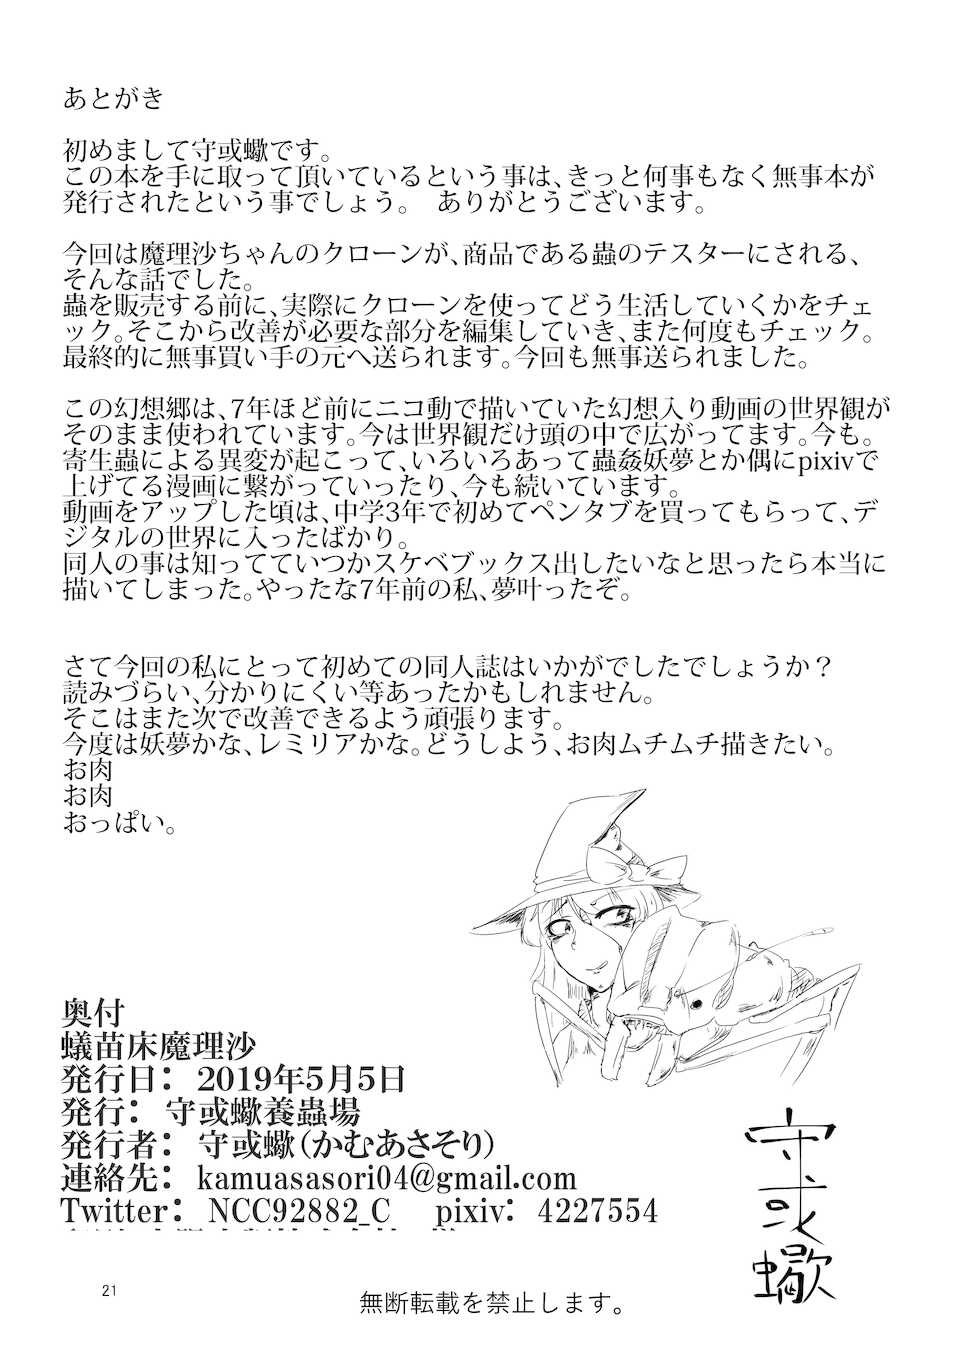 あとがき
初めまして守或蠍です。
この本を手に取って頂いているという事は、きっと何事もなく無事本が
発行されたという事でしょう。 ありがとうございます。
今回は魔理沙ちゃんのクローンが、商品である蟲のテスターにされる、
そんな話でした。
蟲を販売する前に、実際にクローンを使ってどう生活していくかをチェ
ック。そこから改善が必要な部分を編集していき、また何度もチェック。
最終的に無事買い手の元へ送られます。今回も無事送られました。
この幻想郷は、7年ほど前にニコ動で描いていた幻想入り動画の世界観が
そのまま使われています。今は世界観だけ頭の中で広がってます。今も。
寄生蟲による異変が起こって、いろいろあって蟲姦妖夢とか偶にpixivで
上げてる漫画に繋がっていったり、今も続いています。
動画をアップした頃は、中学3年で初めてペンタブを買ってもらって、デ
ジタルの世界に入ったばかり。
同人の事は知ってていつかスケベブックス出したいなと思ったら本当に
描いてしまった。やったな7年前の私、夢叶ったぞ。
さて今回の私にとって初めての同人誌はいかがでしたでしょうか？
読みづらい、分かりにくい等あったかもしれません。
そこはまた次で改善できるよう頑張ります。
今度は妖夢かな、レミリアかな。どうしよう、お肉ムチムチ描きたい。
お肉
お肉
おっぱい。
奥付
蟻苗床魔理沙
発行日： 2019年5月5日
発行： 守或蠍養蟲場
発行者： 守或蠍（かむあさそり）
連絡先： kamuasasori04@gmail.com
Twitter： NCC92882_C pixiv: 4227554
守
或
蠍
21
無断転載を禁止します。